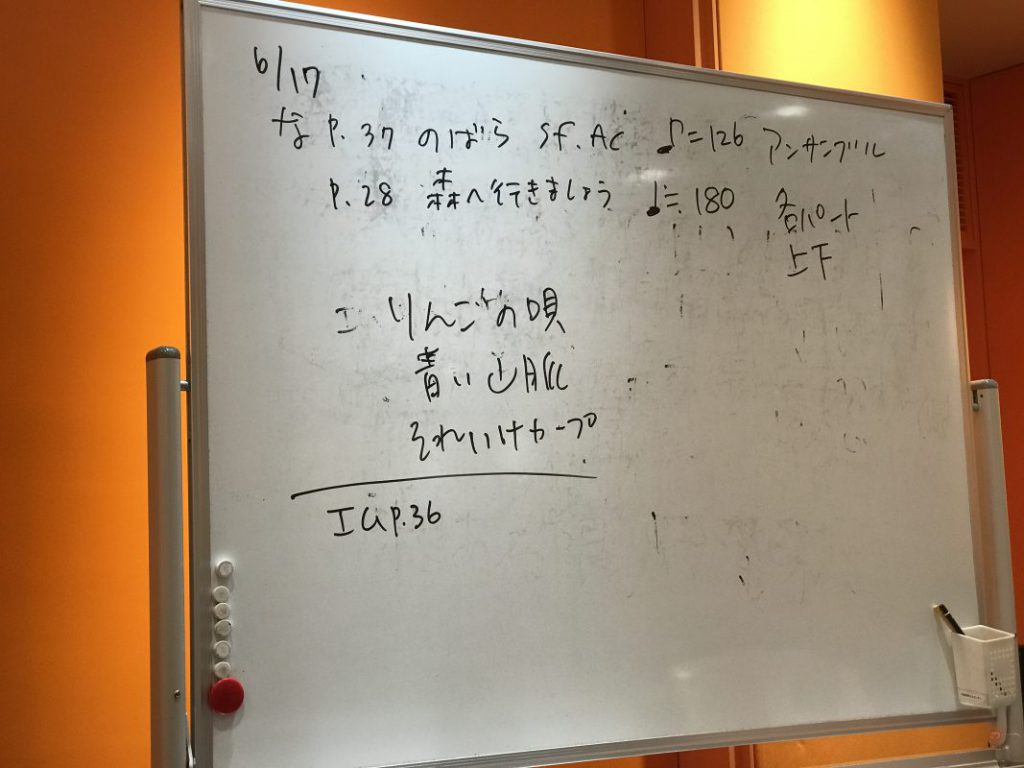 6/17
な P.37 のばら Sf. Ac ♪=126 アンサンブル
P.28 森へ行きましょう ♩≒180 各パート
上下
エ りんごの唄
青い山脈
それいけカープ
エ P.36